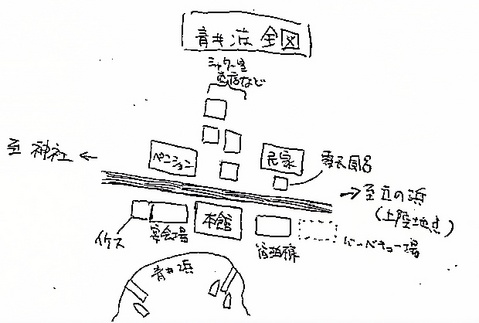 青井浜全図
売店など
ペンション
民家
露天風呂
至 神社 ←
→ 至立の浜
(上陸地点)
イケス
宴会場
本館
宿泊棟
バーベキュー場
青井浜